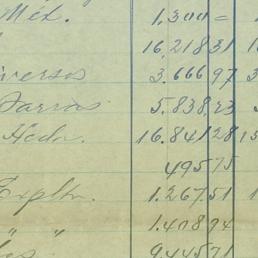 Méx. 1.300 =
16.218 31
iversos 3.666 97
Barros 5.838 23
Hedr. 16.841 28
495 75
Expltn. 1.267 51
" " 1.408 94
9.445 71